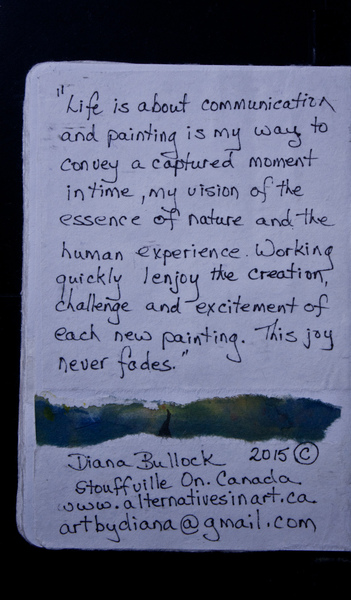 "Life is about communication
and painting is my way to
convey a captured moment
in time, my vision of the
essence of nature and the
human experience. Working
quickly I enjoy the creation,
challenge and excitement of
each new painting. This joy
never fades."
Diana Bullock 2015 ©
Stouffville On. Canada
www.alternativesinart.ca
artbydiana@gmail.com